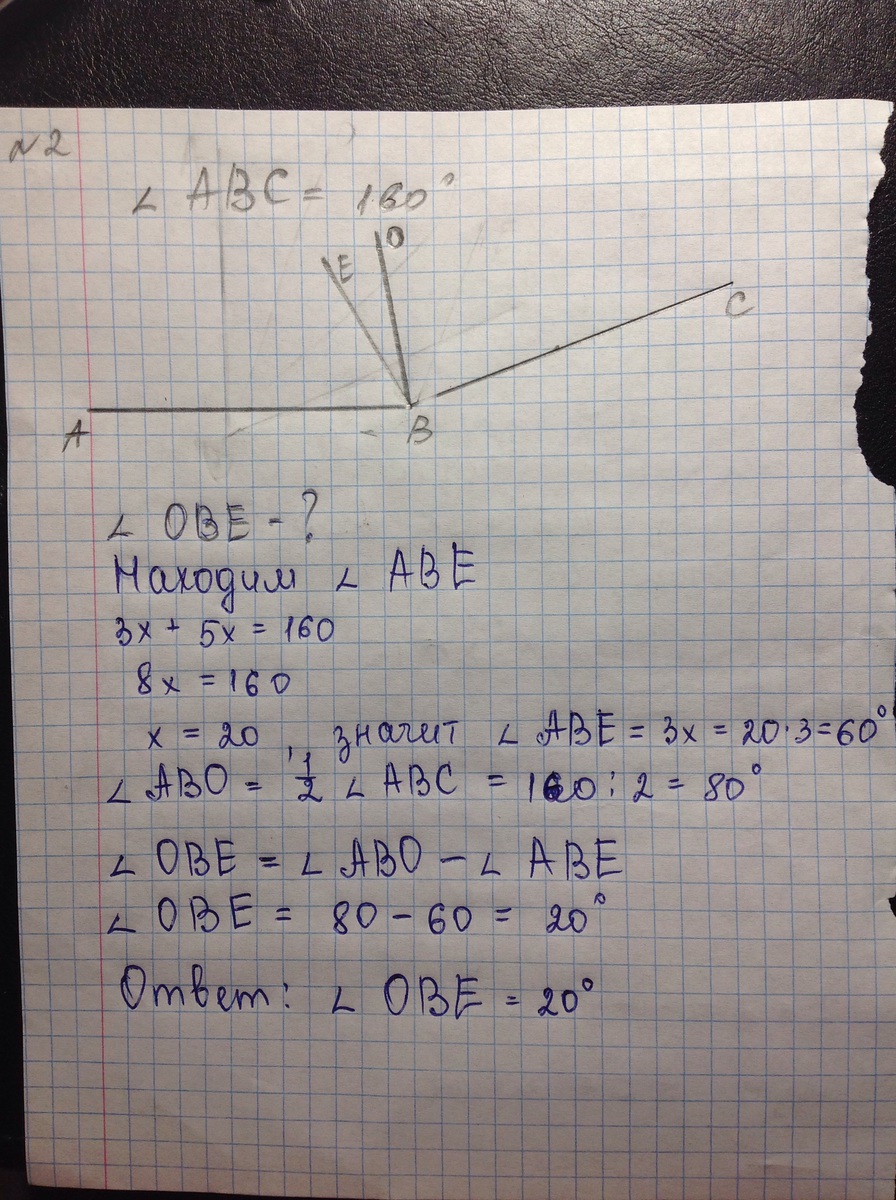 №2
∠ ABC = 160°
E
O
C
A
B
∠ OBE - ?
Находим ∠ ABE
3x + 5x = 160
8x = 160
x = 20 , значит ∠ ABE = 3x = 20·3=60°
∠ ABO = 1/2 ∠ ABC = 160 : 2 = 80°
∠ OBE = ∠ ABO - ∠ ABE
∠ OBE = 80 - 60 = 20°
Ответ: ∠ OBE = 20°